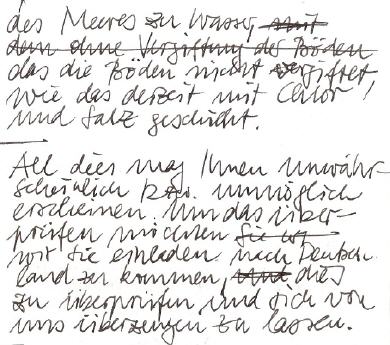 des Meeres zu Wasser, mit
dem ohne Vergiftung der Böden
das die Böden nicht vergiftet
wie das derzeit mit Chlor!
und Salz geschieht.
All dies mag Ihnen unwahr-
scheinlich bzw. unmöglich
erscheinen. Um das über-
prüfen möchten Sie wir
wir Sie einladen nach Deutsch
land zu kommen, und dies
zu überprüfen und sich von
uns überzeugen zu lassen.